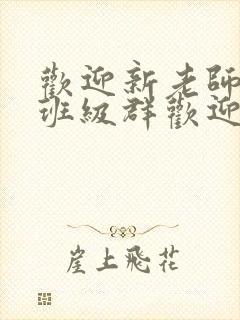 歡迎新老師
班級群歡迎
崖上飛花